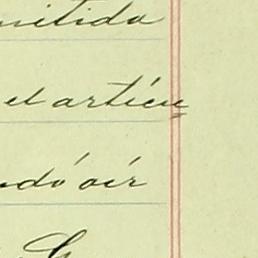 mitida
el artícu
ndó oír